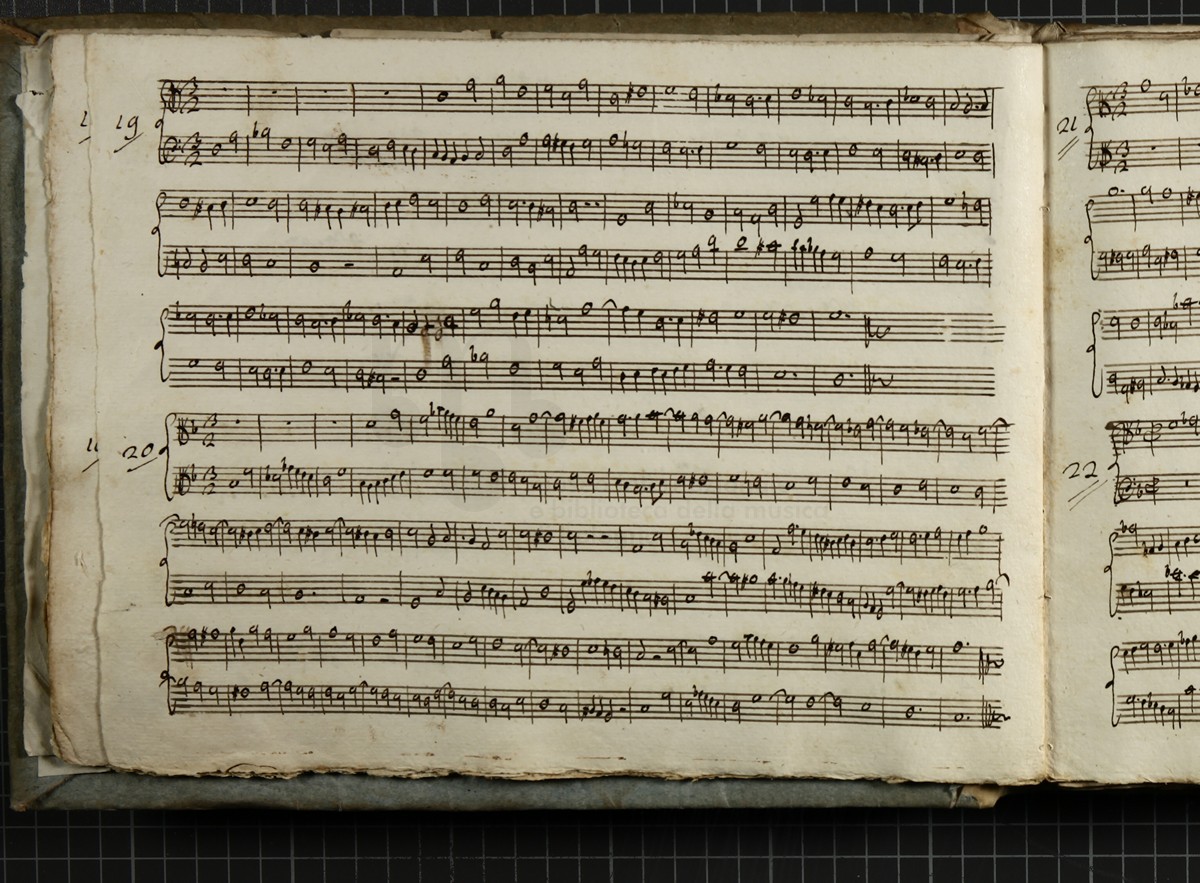 19
3
2
3
2
20
3
2
3
2
e biblioteca della musica
21
3
2
3
2
22